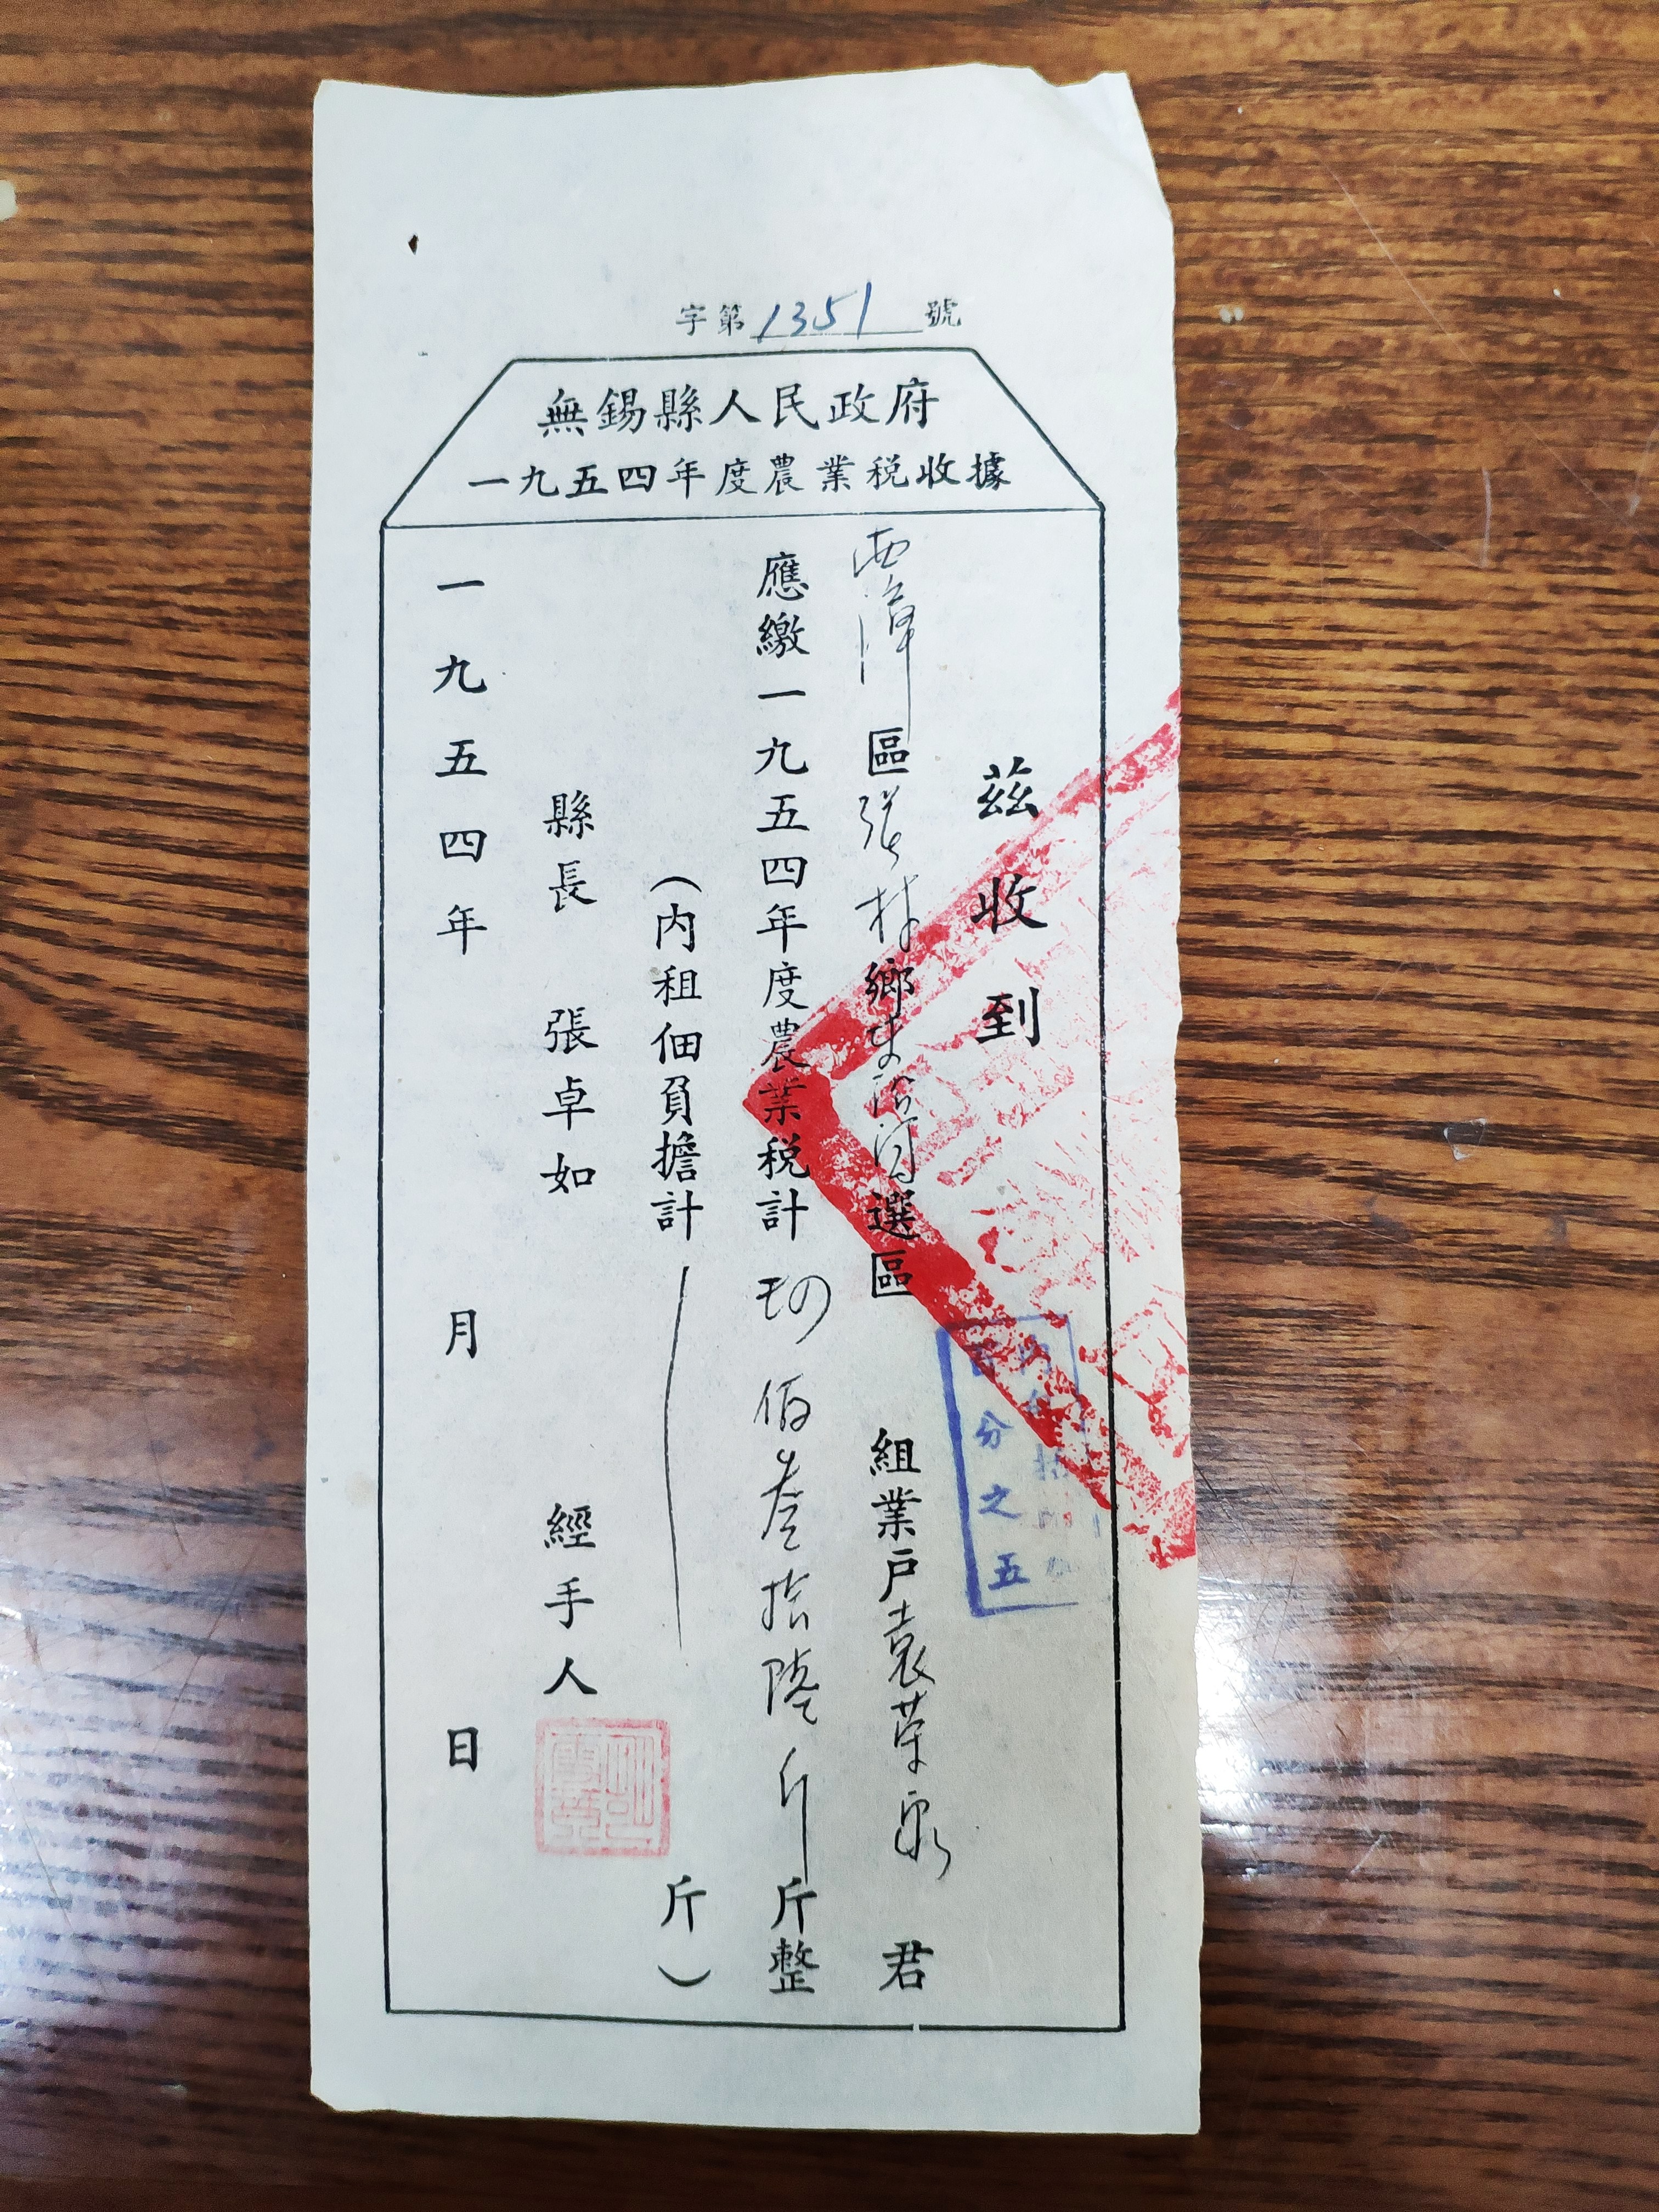 字第1351號
無錫縣人民政府
一九五四年度農業税收據
茲收到
西漳區張村鄉選區 組業戶袁荣泉君
應繳一九五四年度農業税計 佰叁拾陸斤斤整
(内租佃負擔計 斤)
縣長 張卓如 經手人
一九五四年 月 日
分之五